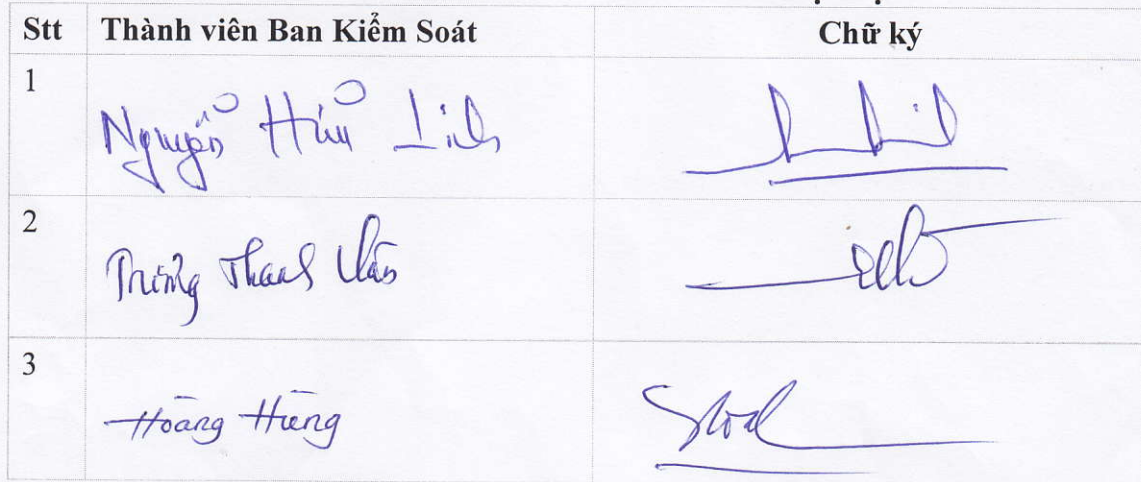 Stt Thành viên Ban Kiểm Soát Chữ ký
1 Nguyễn Hữu Linh
2 Trương Thanh
3 Hoàng Hùng